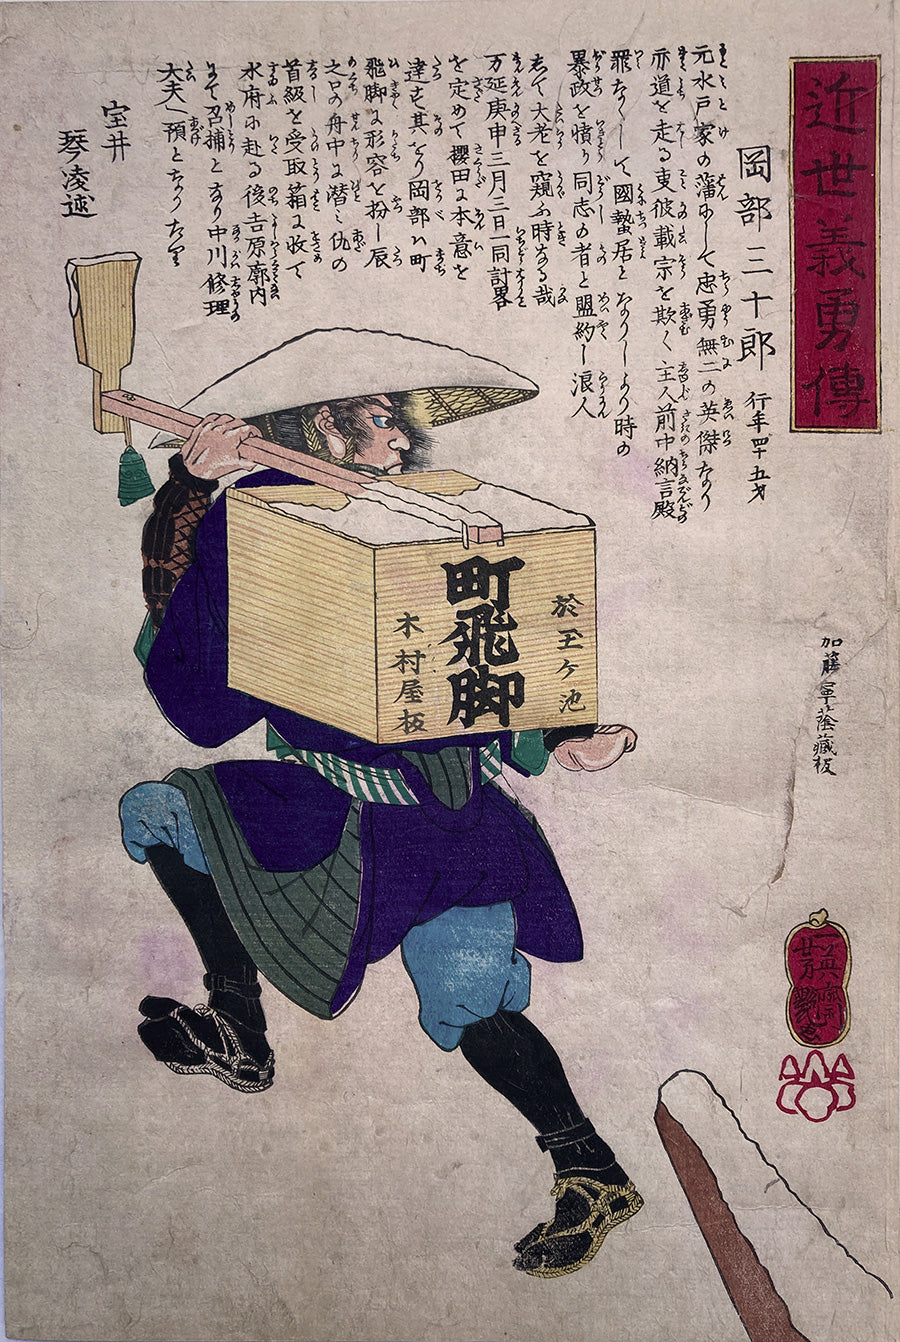 近世義勇傳
岡部三十郎 行年四十五才
元水戸家の藩にして忠勇無二の英傑なり
亦道を走る東彼載宗を欺く主人前中納言殿
罪なくして國蟄居となりしより時の
暴政を憤り同志の者と盟約し浪人
して大老を窺ふ時なる哉
万延庚申三月三日一同計畧
を定めて櫻田に本意を
達す其をり岡部ハ町
飛脚に形容を扮し辰
之口の舟中に潜み仇の
首級を受取箱に收て
水府に赴る後吉原廓内
にて召捕となり中川修理
大夫へ預となりたり
宝井
琴凌述
町飛脚
於玉ヶ池
木村屋板
加藤軍蔭藏板
一英齋
芳艶画